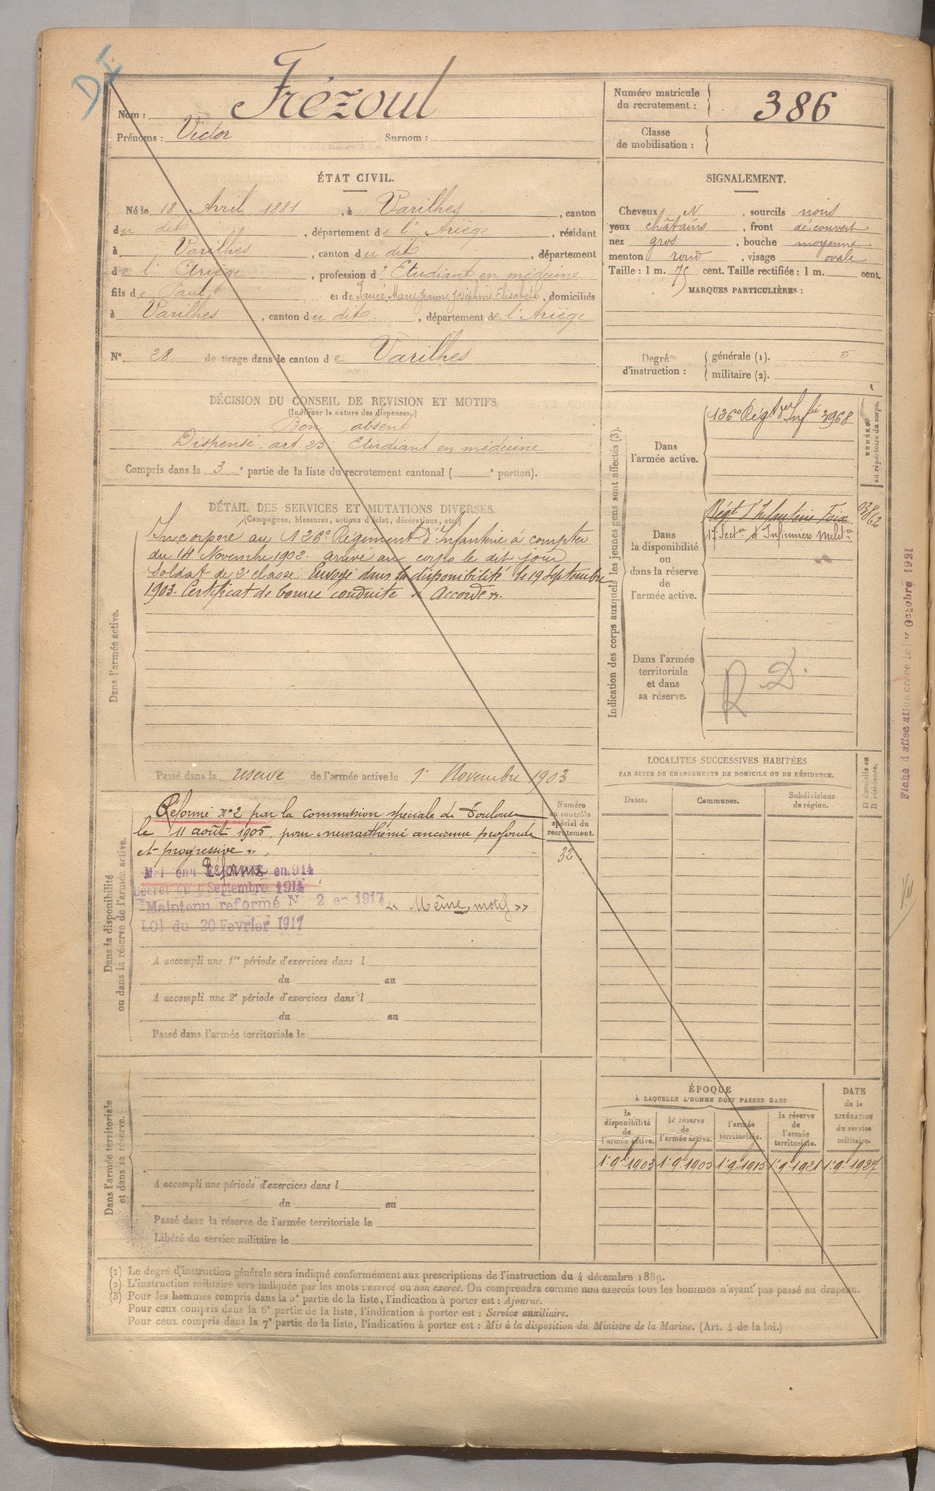 Nom : Frézoul
Prénoms : Victor Surnom :
Numéro matricule du recrutement : 386
Classe de mobilisation :
ÉTAT CIVIL.
Né le 18 Avril 1881, à Varilhes, canton
du dit, département de l'Ariège, résidant
à Varilhes, canton du dit, département
de l'Ariège, profession d'Etudiant en médecine
fils de Paul et de Marie Jeanne Joséphine Elisabeth, domiciliés
à Varilhes, canton du dit, département de l'Ariège
N° 28 de tirage dans le canton de Varilhes
SIGNALEMENT.
Cheveux N, sourcils noirs
yeux châtains, front découvert
nez gros, bouche moyenne
menton rond, visage ovale
Taille : 1 m. 75 cent. Taille rectifiée : 1 m. cent.
MARQUES PARTICULIÈRES :
Degré d'instruction : générale (1).
militaire (2).
DÉCISION DU CONSEIL DE REVISION ET MOTIFS.
(Indiquer la nature des dispenses.)
Bon absent
Dispensé art 23 Etudiant en médecine
Compris dans la 3e partie de la liste du recrutement cantonal ( e portion).
DÉTAIL DES SERVICES ET MUTATIONS DIVERSES.
(Campagnes, blessures, actions d'éclat, décorations, etc.)
Dans l'armée active.
Incorporé au 126e Régiment d'Infanterie à compter
du 14 Novembre 1902. arrivé au corps le dit jour
Soldat de 2e classe. Envoyé dans la disponibilité le 19 Septembre
1903. Certificat de bonne conduite "Accordé".
Passé dans la réserve de l'armée active le 1er Novembre 1903
Indication des corps auxquels les jeunes gens sont affectés (3).
Dans l'armée active.
126e Regt d'Infie 3968
NUMÉRO au répertoire du corps.
Dans la disponibilité ou dans la réserve de l'armée active.
Régt d'Infanterie Foix
17e Secton d'Infirmiers milit.
Dans l'armée territoriale et dans sa réserve.
R D.
Fiche d'affectation créée le 1er Octobre 1921
Dans la disponibilité ou dans la réserve de l'armée active.
Réformé n°2 par la commission spéciale de Toulouse
le 11 août 1905, pour "neurasthénie ancienne profonde
et progressive".
Décret du Septembre 1914
Maintenu reformé N° 2 en 1917 « Même motif »
LOI du 20 Fevrier 1917
Numéro au contrôle spécial du recrutement.
32
A accompli une 1re période d'exercices dans l
du au
A accompli une 2e période d'exercices dans l
du au
Passé dans l'armée territoriale le
LOCALITÉS SUCCESSIVES HABITÉES
PAR SUITE DE CHANGEMENTS DE DOMICILE OU DE RÉSIDENCE.
Dates. Communes. Subdivisions de région. D domicile ou R résidence.
Dans l'armée territoriale et dans sa réserve.
A accompli une période d'exercices dans l
du au
Passé dans la réserve de l'armée territoriale le
Libéré du service militaire le
ÉPOQUE
À LAQUELLE L'HOMME DOIT PASSER DANS
la disponibilité de l'armée active. la réserve de l'armée active. l'armée territoriale. la réserve de l'armée territoriale.
DATE de la LIBÉRATION du service militaire.
(1) Le degré d'instruction générale sera indiqué conformément aux prescriptions de l'instruction du 4 décembre 1889.
(2) L'instruction militaire sera indiquée par les mots : exercé ou non exercé. On comprendra comme non exercés tous les hommes n'ayant pas passé au drapeau.
(3) Pour les hommes compris dans la 5e partie de la liste, l'indication à porter est : Ajourné.
Pour ceux compris dans la 6e partie de la liste, l'indication à porter est : Service auxiliaire.
Pour ceux compris dans la 7e partie de la liste, l'indication à porter est : Mis à la disposition du Ministre de la Marine. (Art. 4 de la loi.)